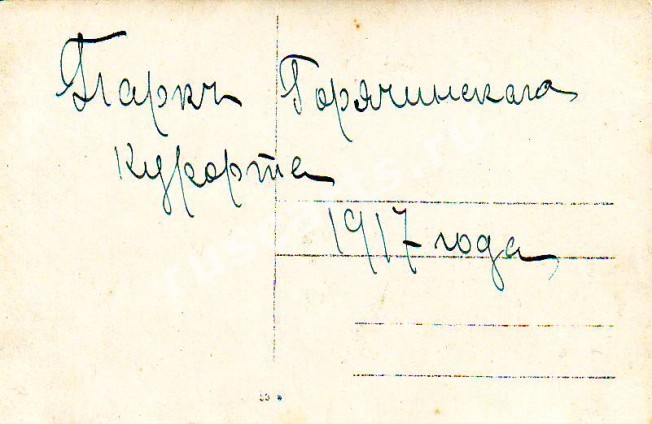 Паркъ Горячинскаго
курорта
1917 года
53